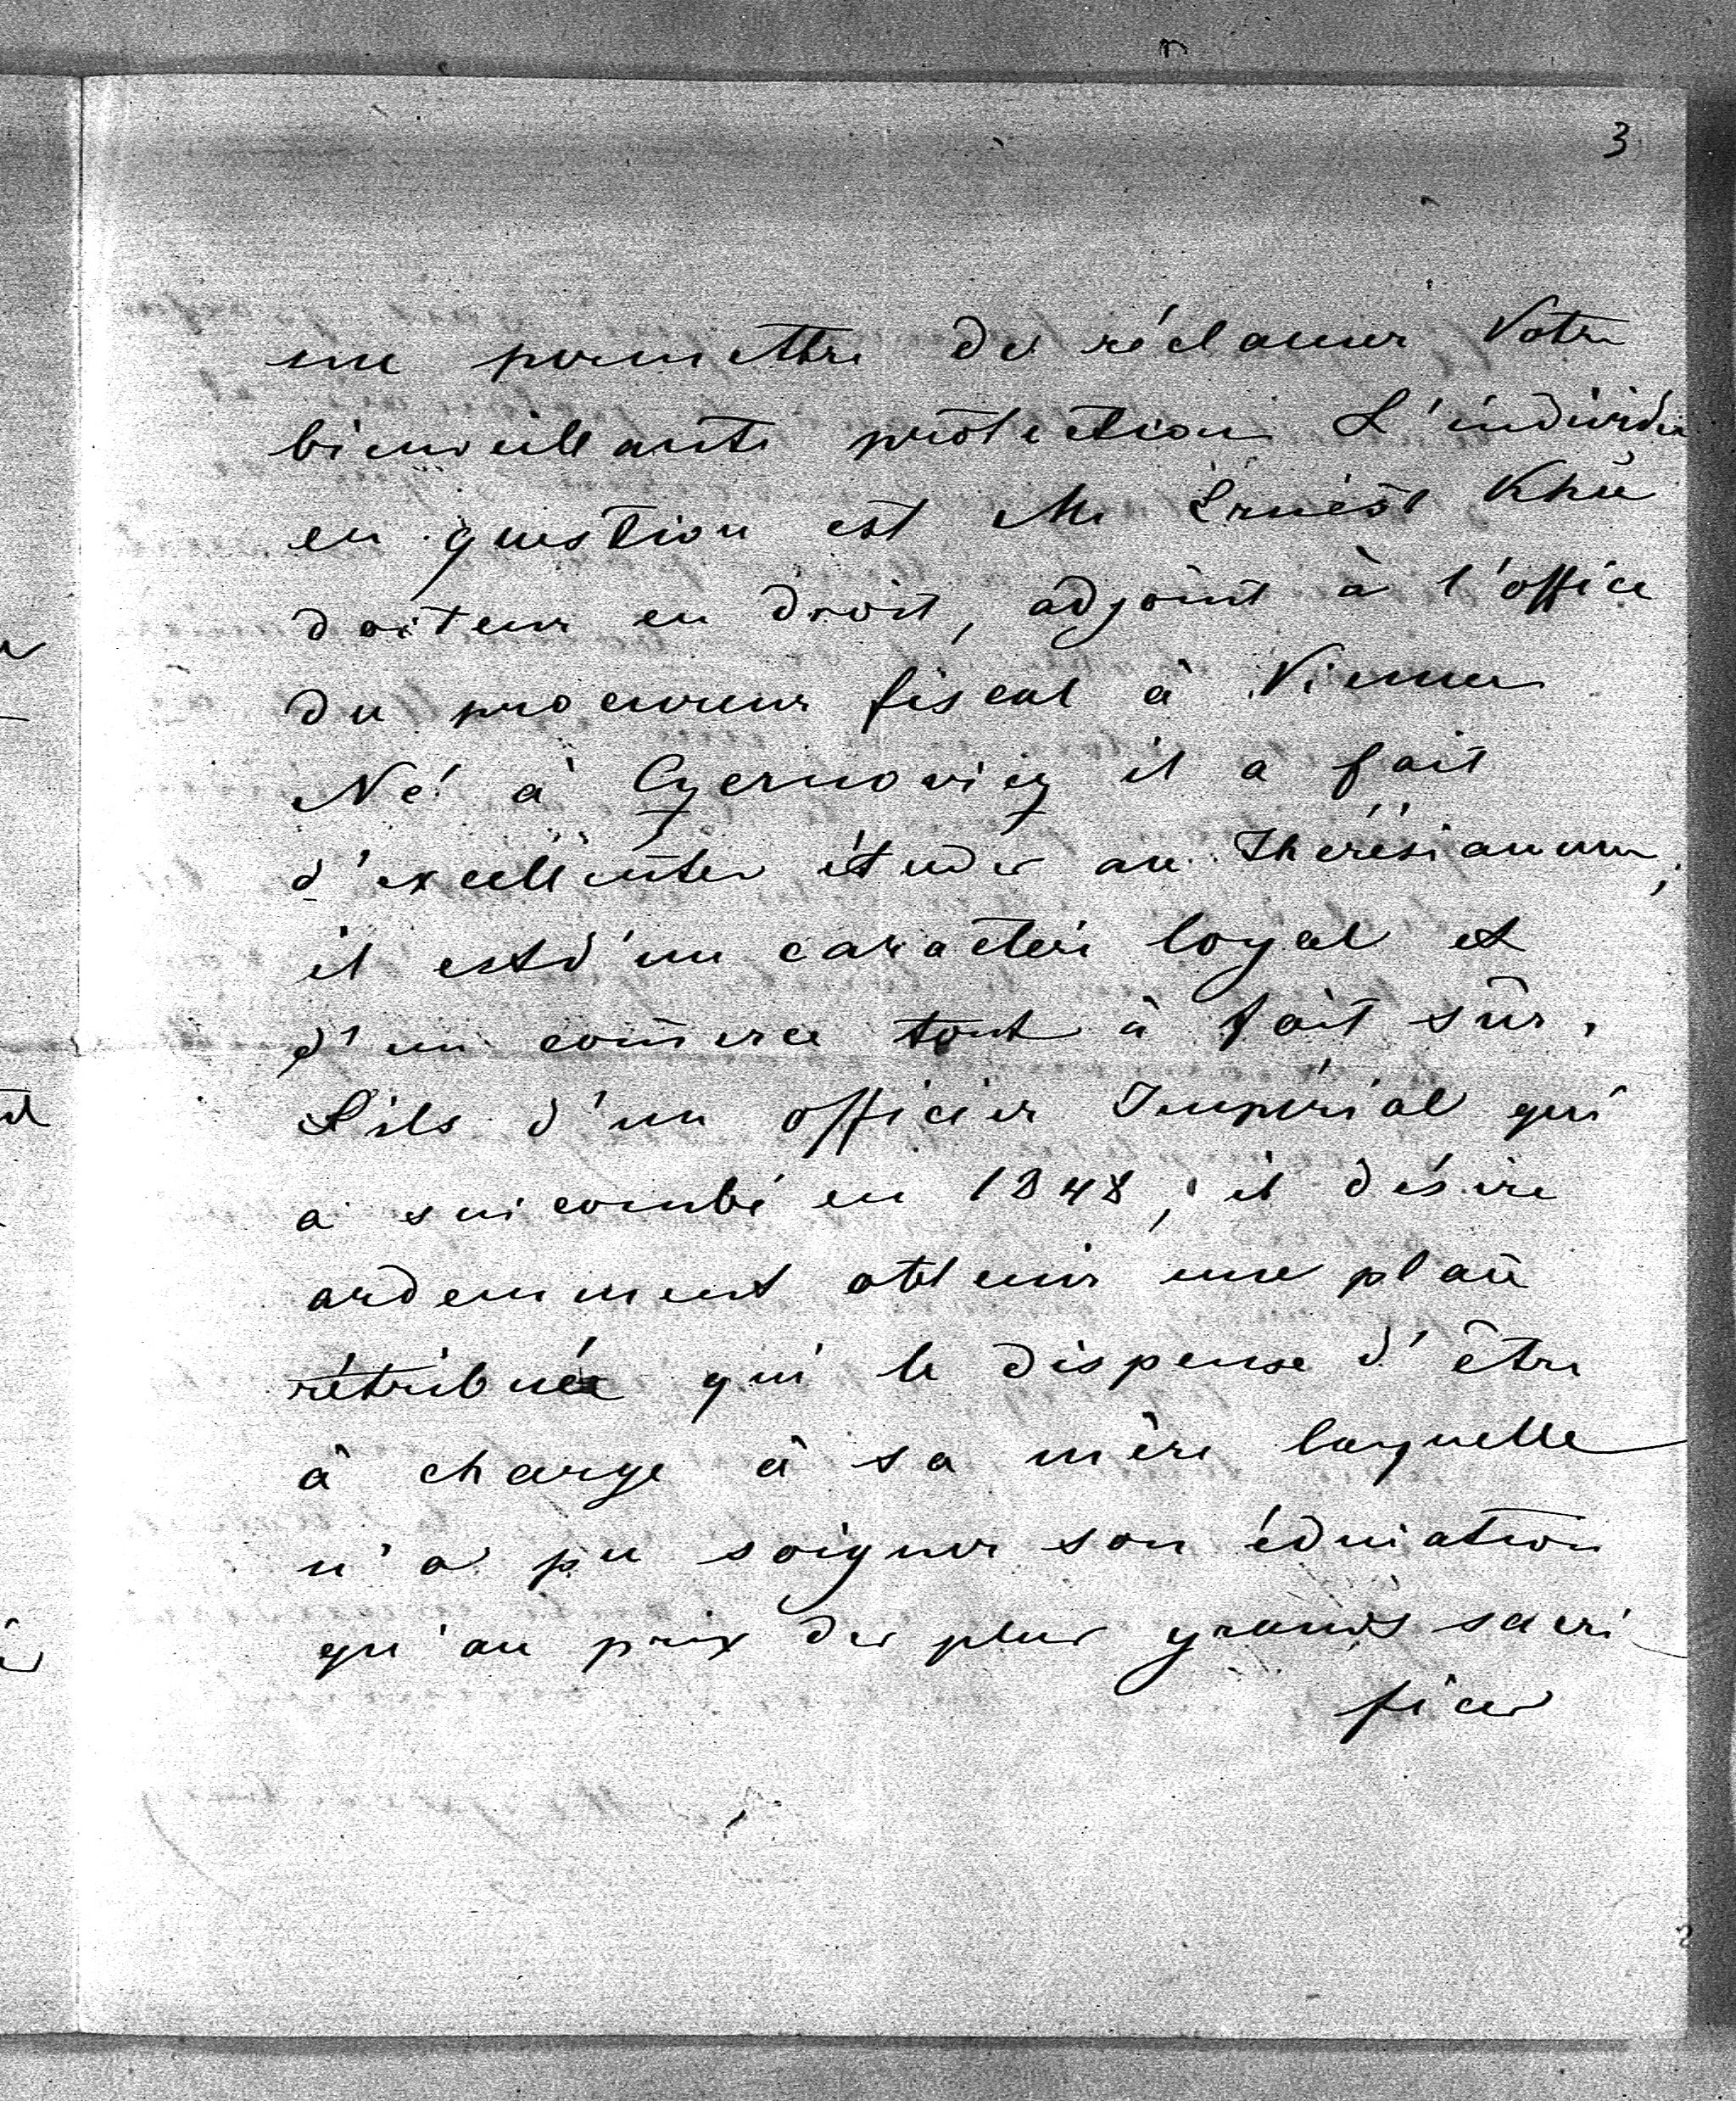 3
me permettre de réclamer Votre
bienveillante protection L'individu
en question est Mr Ernest
docteur en droit, adjoint à l'office
du procureur fiscal à Vienne
Né à Czernovicz il a fait
d'excellentes études au Thérésianum,
il est d'un caractère loyal et
d'un com̄erce tout à fait sûr.
Fils d'un officier Impérial qui
a succombé en 1848, il désire
ardemment obtenir une place
rétribuée qui le dispense d'être
à charge à sa mère laquelle
n'a pu soigner son éducation
qu'au prix des plus grands sacri
fices